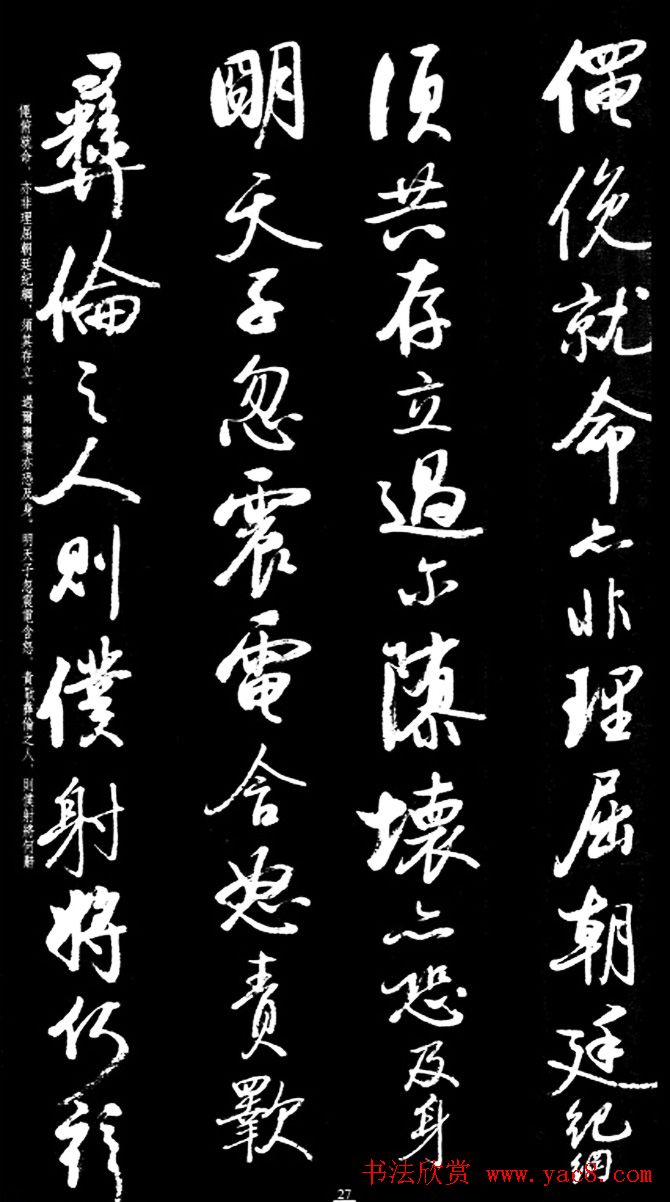 僶俛就命亦非理屈朝廷紀綱
須共存立過尔隳壞亦恐及身
明天子忽震電含怒責斁
彝倫之人則僕射將何辭
僶俯就命，亦非理屈朝廷紀綱，須共存立。過爾隳壞亦恐及身。明天子忽震電含怒，責斁彝倫之人，則僕射將何辭
27
书法欣赏 www.yac8.com